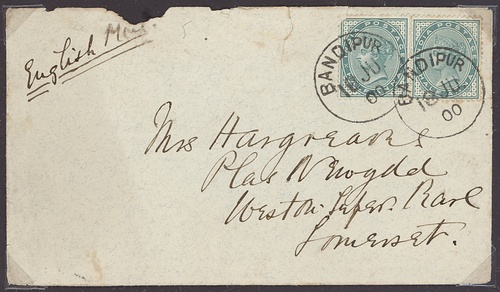 English Mail
BANDIPUR
18 JU
00
BANDIPUR
18 JU
00
Mrs Hargreaves
Plas Newydd
Weston-Super-Mare
Somerset.